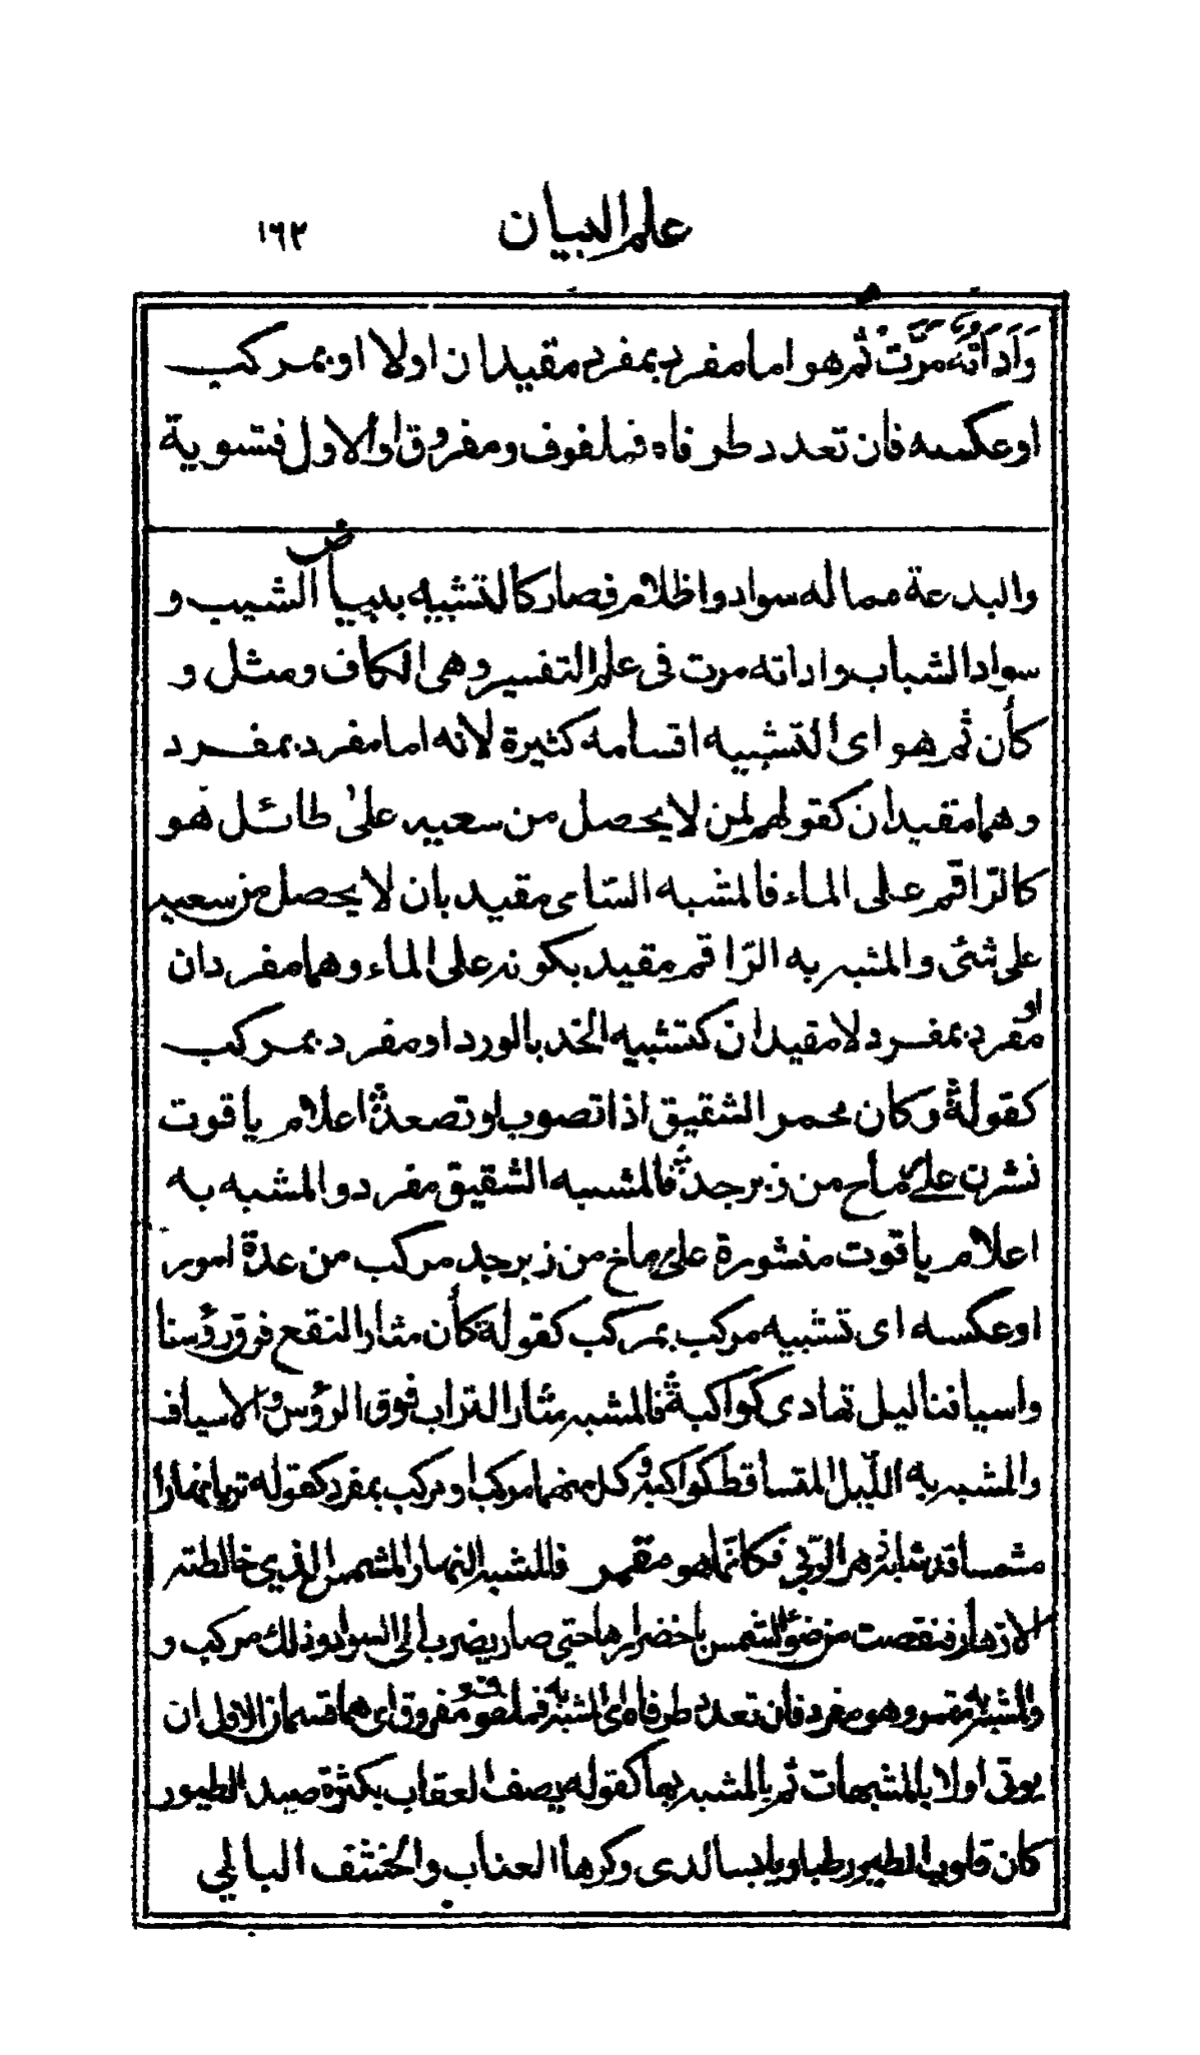 علم البيان ١٦٢
وَاَدَاتُهُ مَرَّتْ ثم هو اما مفرد بمفرد مقيدان اولا او بمركب
او عكسه فان تعدد طرفاه فملفوف ومفروق او الاول فتسوية
والبدعة مما له سواد واظلام فصار كالتشبيه ببياض الشيب و
سواد الشباب واداته مرت فى علم التفسير وهى الكاف ومثل و
كأن ثم هو اى التشبيه اقسامه كثيرة لانه اما مفرد بمفرد
وهما مقيدان كقولهم لمن لا يحصل من سعيه على طائل هو
كالرّاقم على الماء فالمشبه السّاعى مقيد بان لا يحصل من سعيه
على شئى والمشبه به الرّاقم مقيد بكونه على الماء وهما مفردان او
مفرد بمفرد لا مقيدان كتشبيه الخد بالورد او مفرد بمركب
كقوله وكان محمر الشقيق اذا تصوب او تصعد اعلام ياقوت
نشرن على رماح من زبرجد فالمشبه الشقيق مفرد والمشبه به
اعلام ياقوت منشورة على رماح من زبرجد مركب من عدة امور
او عكسه اى تشبيه مركب بمركب كقوله كأن مثار النقع فوق رؤسنا
واسيافنا ليل تهادى كواكبه فالمشبه مثار التراب فوق الرؤس والاسياف
والمشبه به اللّيل المتساقط كواكبه وكل منهما مركب او مركب بمفرد كقوله تريا نهارا
مشمسا قد شابه زهر الرّبى فكانّما هو مقمر فالمشبه النهار المشمس الذى خالطته
الازهار فنقصت من ضوء الشمس باخضرارها حتى صار يضرب الى السواد وذلك مركب و
والمشبه به مقمر وهو مفرد فان تعدد طرفاه اى المشبه به فملفوف ومفروق اى هما قسمان الاول ان
يوتى اولا بالمشبهات ثم بالمشبه بها كقوله يصف العقاب بكثرة صيد الطيور
كان قلوب الطير رطبا ويابسا لدى وكرها العناب والخشف البالي